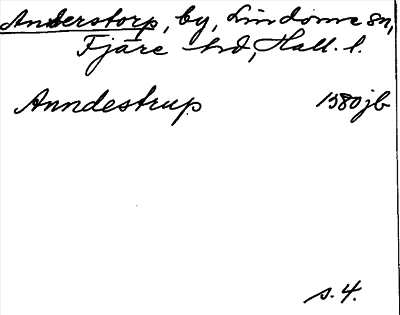 Anderstorp, by, Lindome sn,
Fjäre hd, Hall. l.
Anndestrup 1580 jb
s. 4.